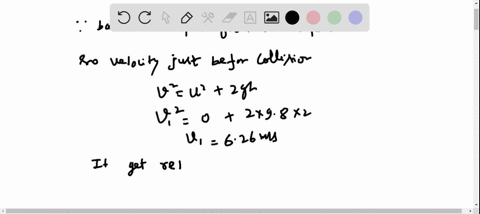 ∵ ba
So velocity just befor Collision
v² = u² + 2gh
v₁² = 0 + 2×9.8×2
v₁ = 6.26 m/s
It get rel